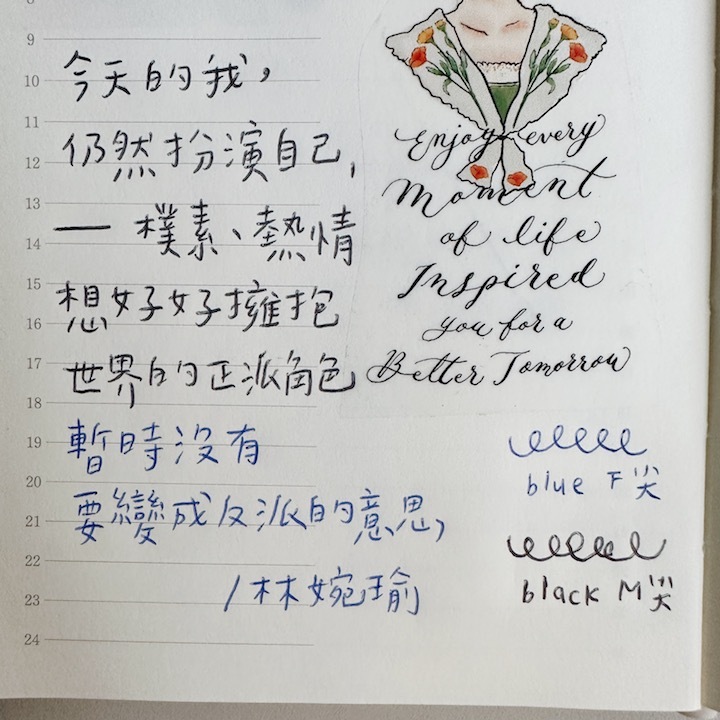 8
9
10
11
12
13
14
15
16
17
18
19
20
21
22
23
24
今天的我，
仍然扮演自己，
— 樸素、熱情
想好好擁抱
世界的正派角色
暫時沒有
要變成反派的意思，
/林婉瑜
Enjoy every
Moment
of life
Inspired
you for a
Better Tomorrow
blue F尖
black M尖